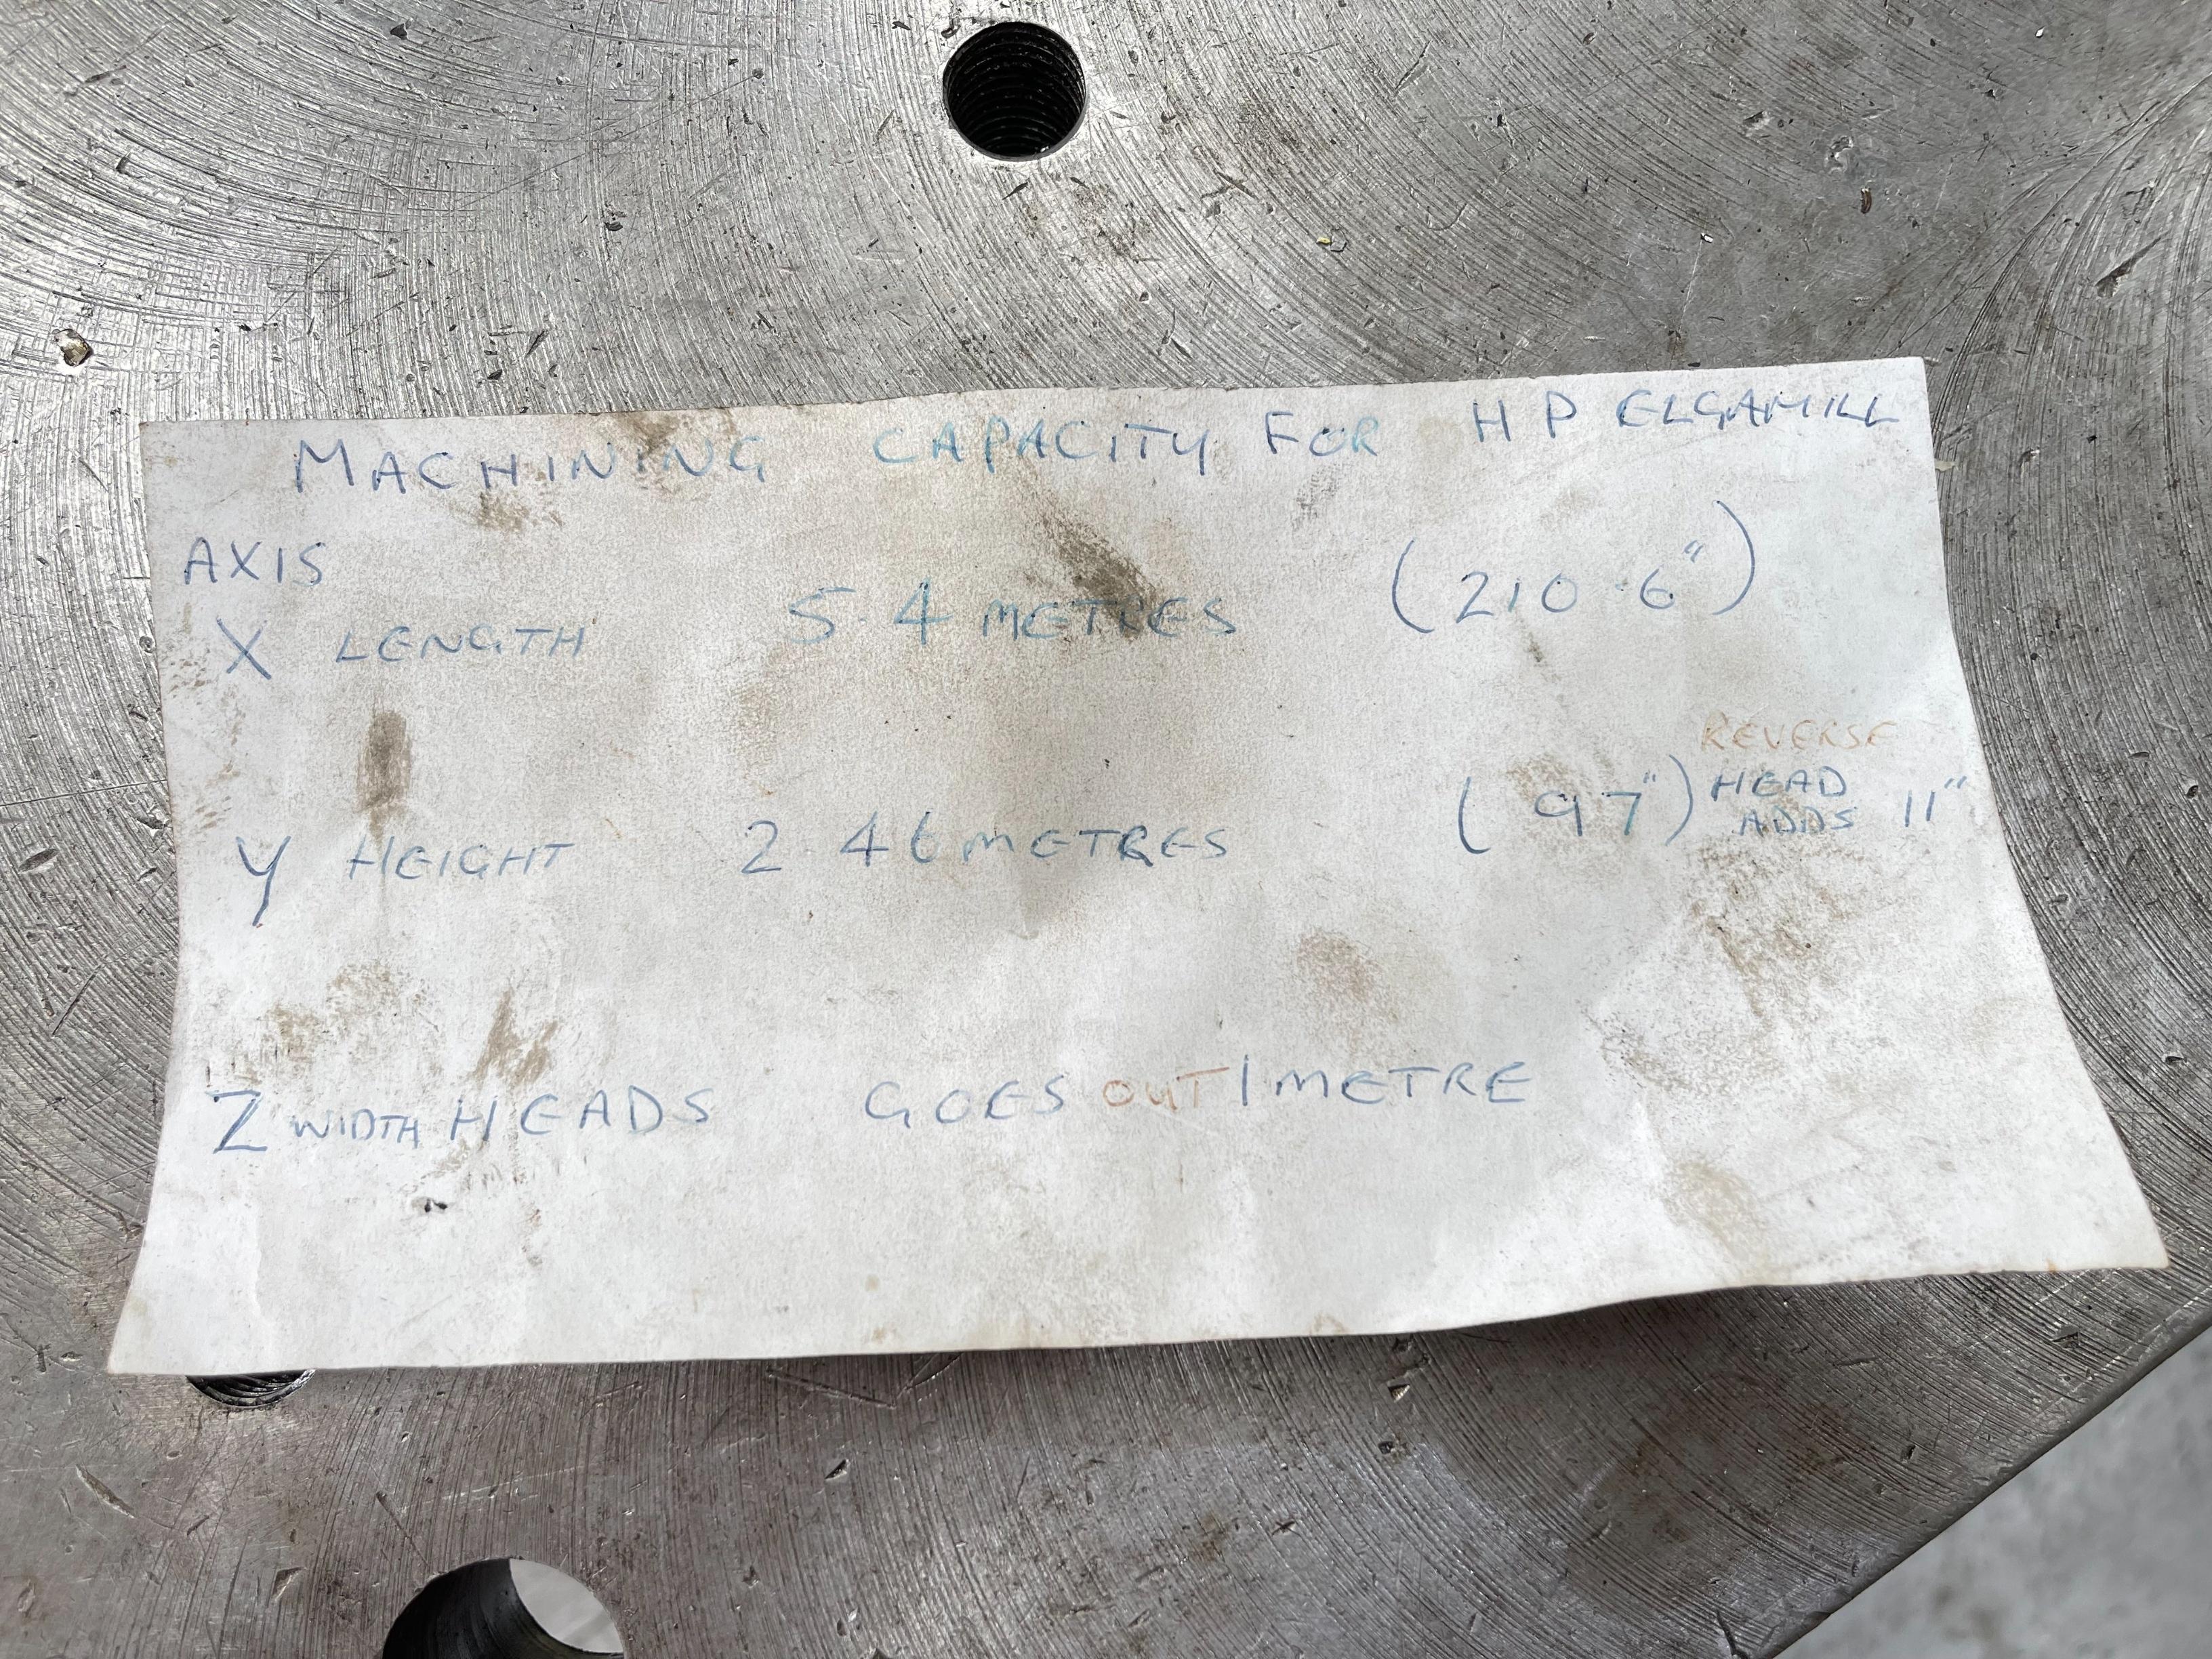 MACHINING CAPACITY FOR HP ELGAMILL
AXIS
X LENGTH 5.4 METRES (210.6")
Y HEIGHT 2.46 METRES (97") REVERSE HEAD ADDS 11"
Z WIDTH HEADS GOES OUT 1 METRE